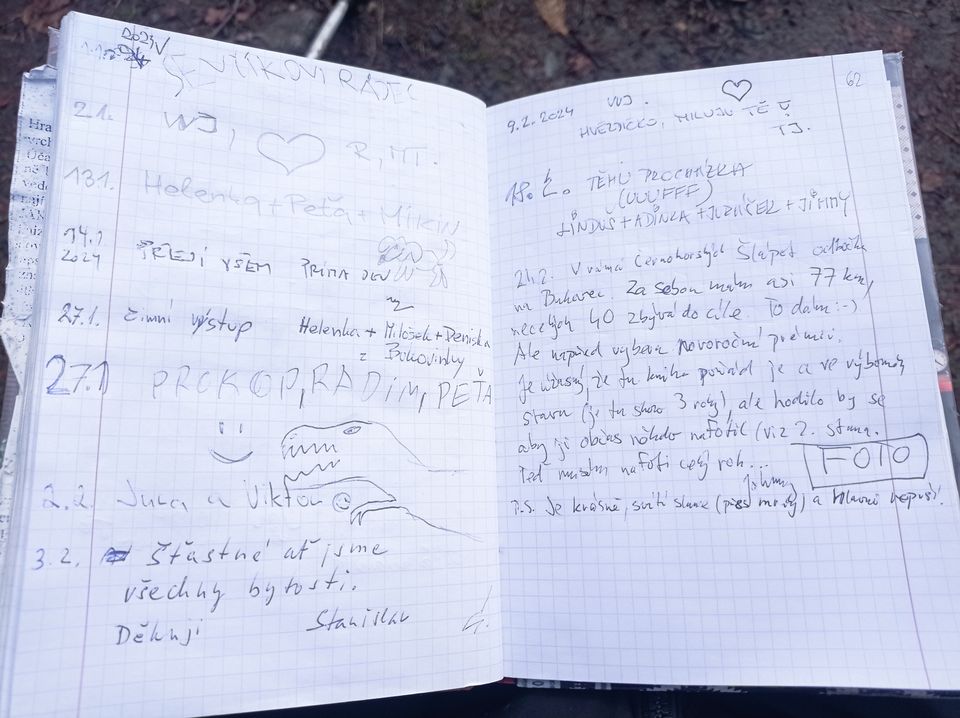 2024
1.1.
21. VVJ, R, MT.
13.1. Helenka + Peťa + Mikin
14.1 2024 PŘEJÍ VŠEM PRIMA DEN
27.1. zimní výstup Helenka + Milošek + Deniska
z Bukovinky
27.1 PROKOP, RADIM, PEŤA
2.2. Jurca a Viktor
3.2. Šťastné ať jsme
všechny bytosti.
Děkuji Stanislav
62
9.2.2024 VVJ.
HVĚZDIČKO, MILUJU TĚ
TJ.
18.2. TĚHU PROCHÁZKA
(UUUFFF)
LÍNDUŠ + ADÍNKA + + JIMMY
24.2. V rámci Černohorských Šlápet odbočka
na Bukovec. Za sebou mám asi 77 km,
necelých 40 zbývá do cíle. To dám :-)
Ale nápad výběru novoroční prémií.
Je úžasný, že tu kniha pořád je a ve výborném
stavu (je tu skoro 3 roky), ale hodilo by se
aby ji občas někdo nafotil (viz 2. strana.
Teď musím nafotit celý rok...
FOTO
P.S. Je krásně, svítí slunce (přes mraky) a hlavně neprší!